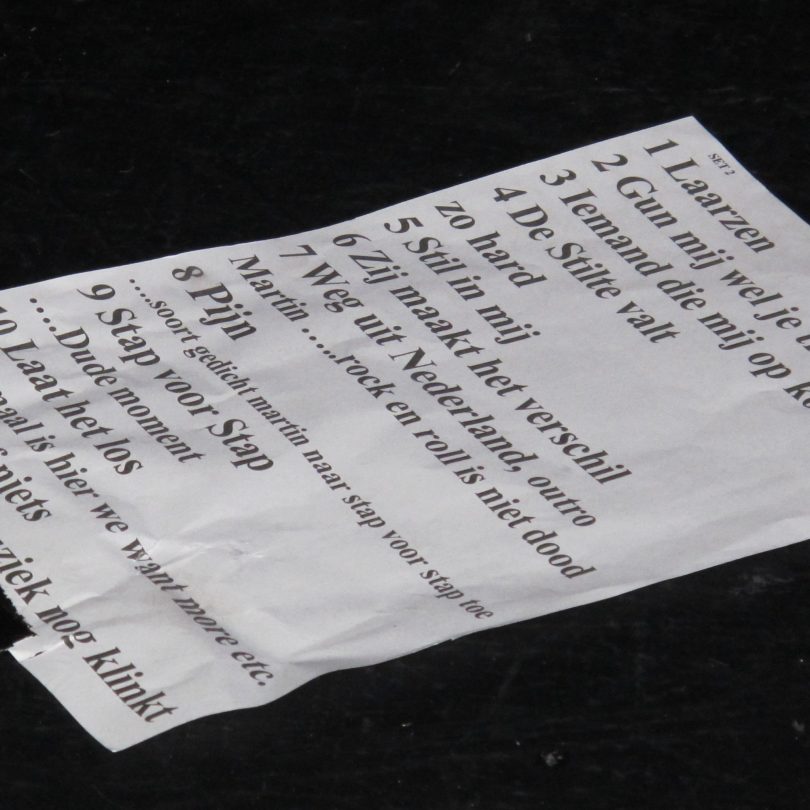 SET 2
1 Laarzen
2 Gun mij wel je
3 Iemand die mij op
4 De Stilte valt
zo hard
5 Stil in mij
6 Zij maakt het verschil
7 Weg uit Nederland, outro
Martin .....rock en roll is niet dood
8 Pijn
....soort gedicht martin naar stap voor stap toe
9 Stap voor Stap
....Dude moment
10 Laat het los
is hier we want more etc.
niets
nog klinkt